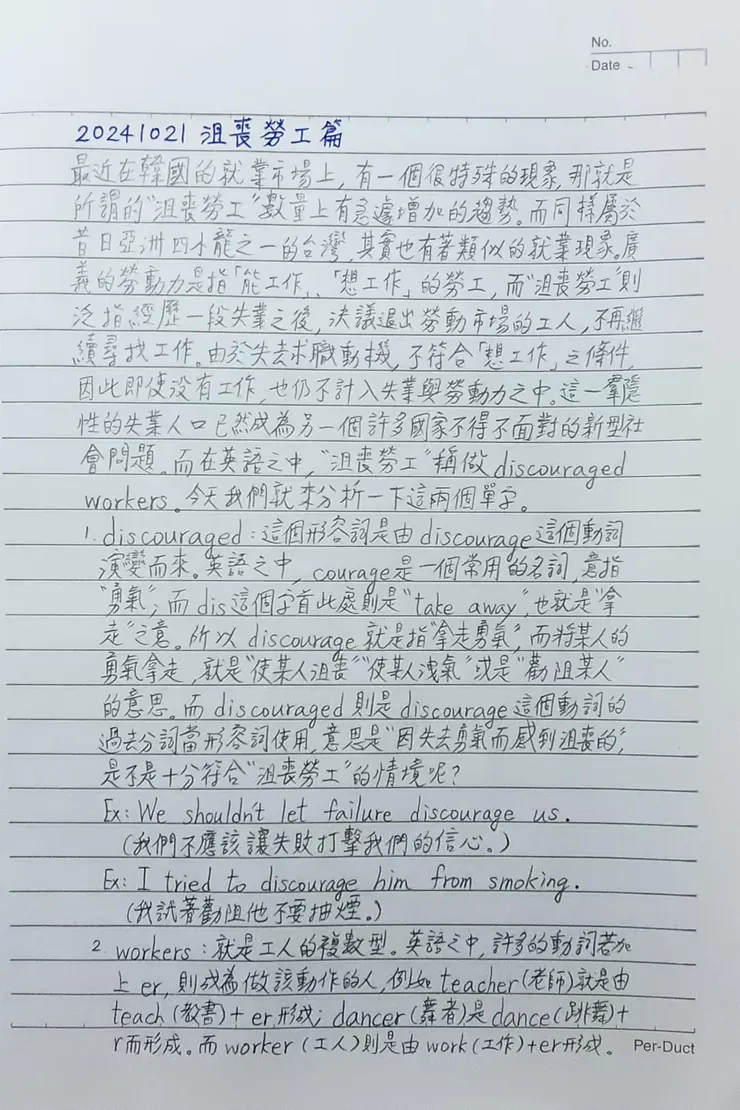 No.
Date
20241021 沮喪勞工篇
最近在韓國的就業市場上,有一個很特殊的現象,那就是
所謂的"沮喪勞工"數量上有急遽增加的趨勢。而同樣屬於
昔日亞洲四小龍之一的台灣,其實也有著類似的就業現象。廣
義的勞動力是指「能工作」、「想工作」的勞工,而"沮喪勞工"則
泛指經歷一段失業之後,決議退出勞動市場的工人,不再繼
續尋找工作。由於失去求職動機,不符合「想工作」之條件,
因此即使沒有工作,也仍不計入失業與勞動力之中。這一羣隱
性的失業人口已然成為另一個許多國家不得不面對的新型社
會問題。而在英語之中,"沮喪勞工"稱做discouraged
workers。今天我們就來分析一下這兩個單字。
1. discouraged:這個形容詞是由discourage這個動詞
演變而來。英語之中,courage是一個常用的名詞,意指
"勇氣";而dis這個字首此處則是"take away",也就是"拿
走"之意。所以discourage就是指"拿走勇氣",而將某人的
勇氣拿走,就是"使某人沮喪""使某人洩氣"或是"勸阻某人"
的意思。而discouraged則是discourage這個動詞的
過去分詞當形容詞使用,意思是"因失去勇氣而感到沮喪的",
是不是十分符合"沮喪勞工"的情境呢?
Ex: We shouldn't let failure discourage us.
(我們不應該讓失敗打擊我們的信心。)
Ex: I tried to discourage him from smoking.
(我試著勸阻他不要抽煙。)
2. workers:就是工人的複數型。英語之中,許多的動詞若加
上er,則成為做該動作的人,例如teacher(老師)就是由
teach(教書)+er形成;dancer(舞者)是dance(跳舞)+
r而形成。而worker(工人)則是由work(工作)+er形成。
Per-Duct